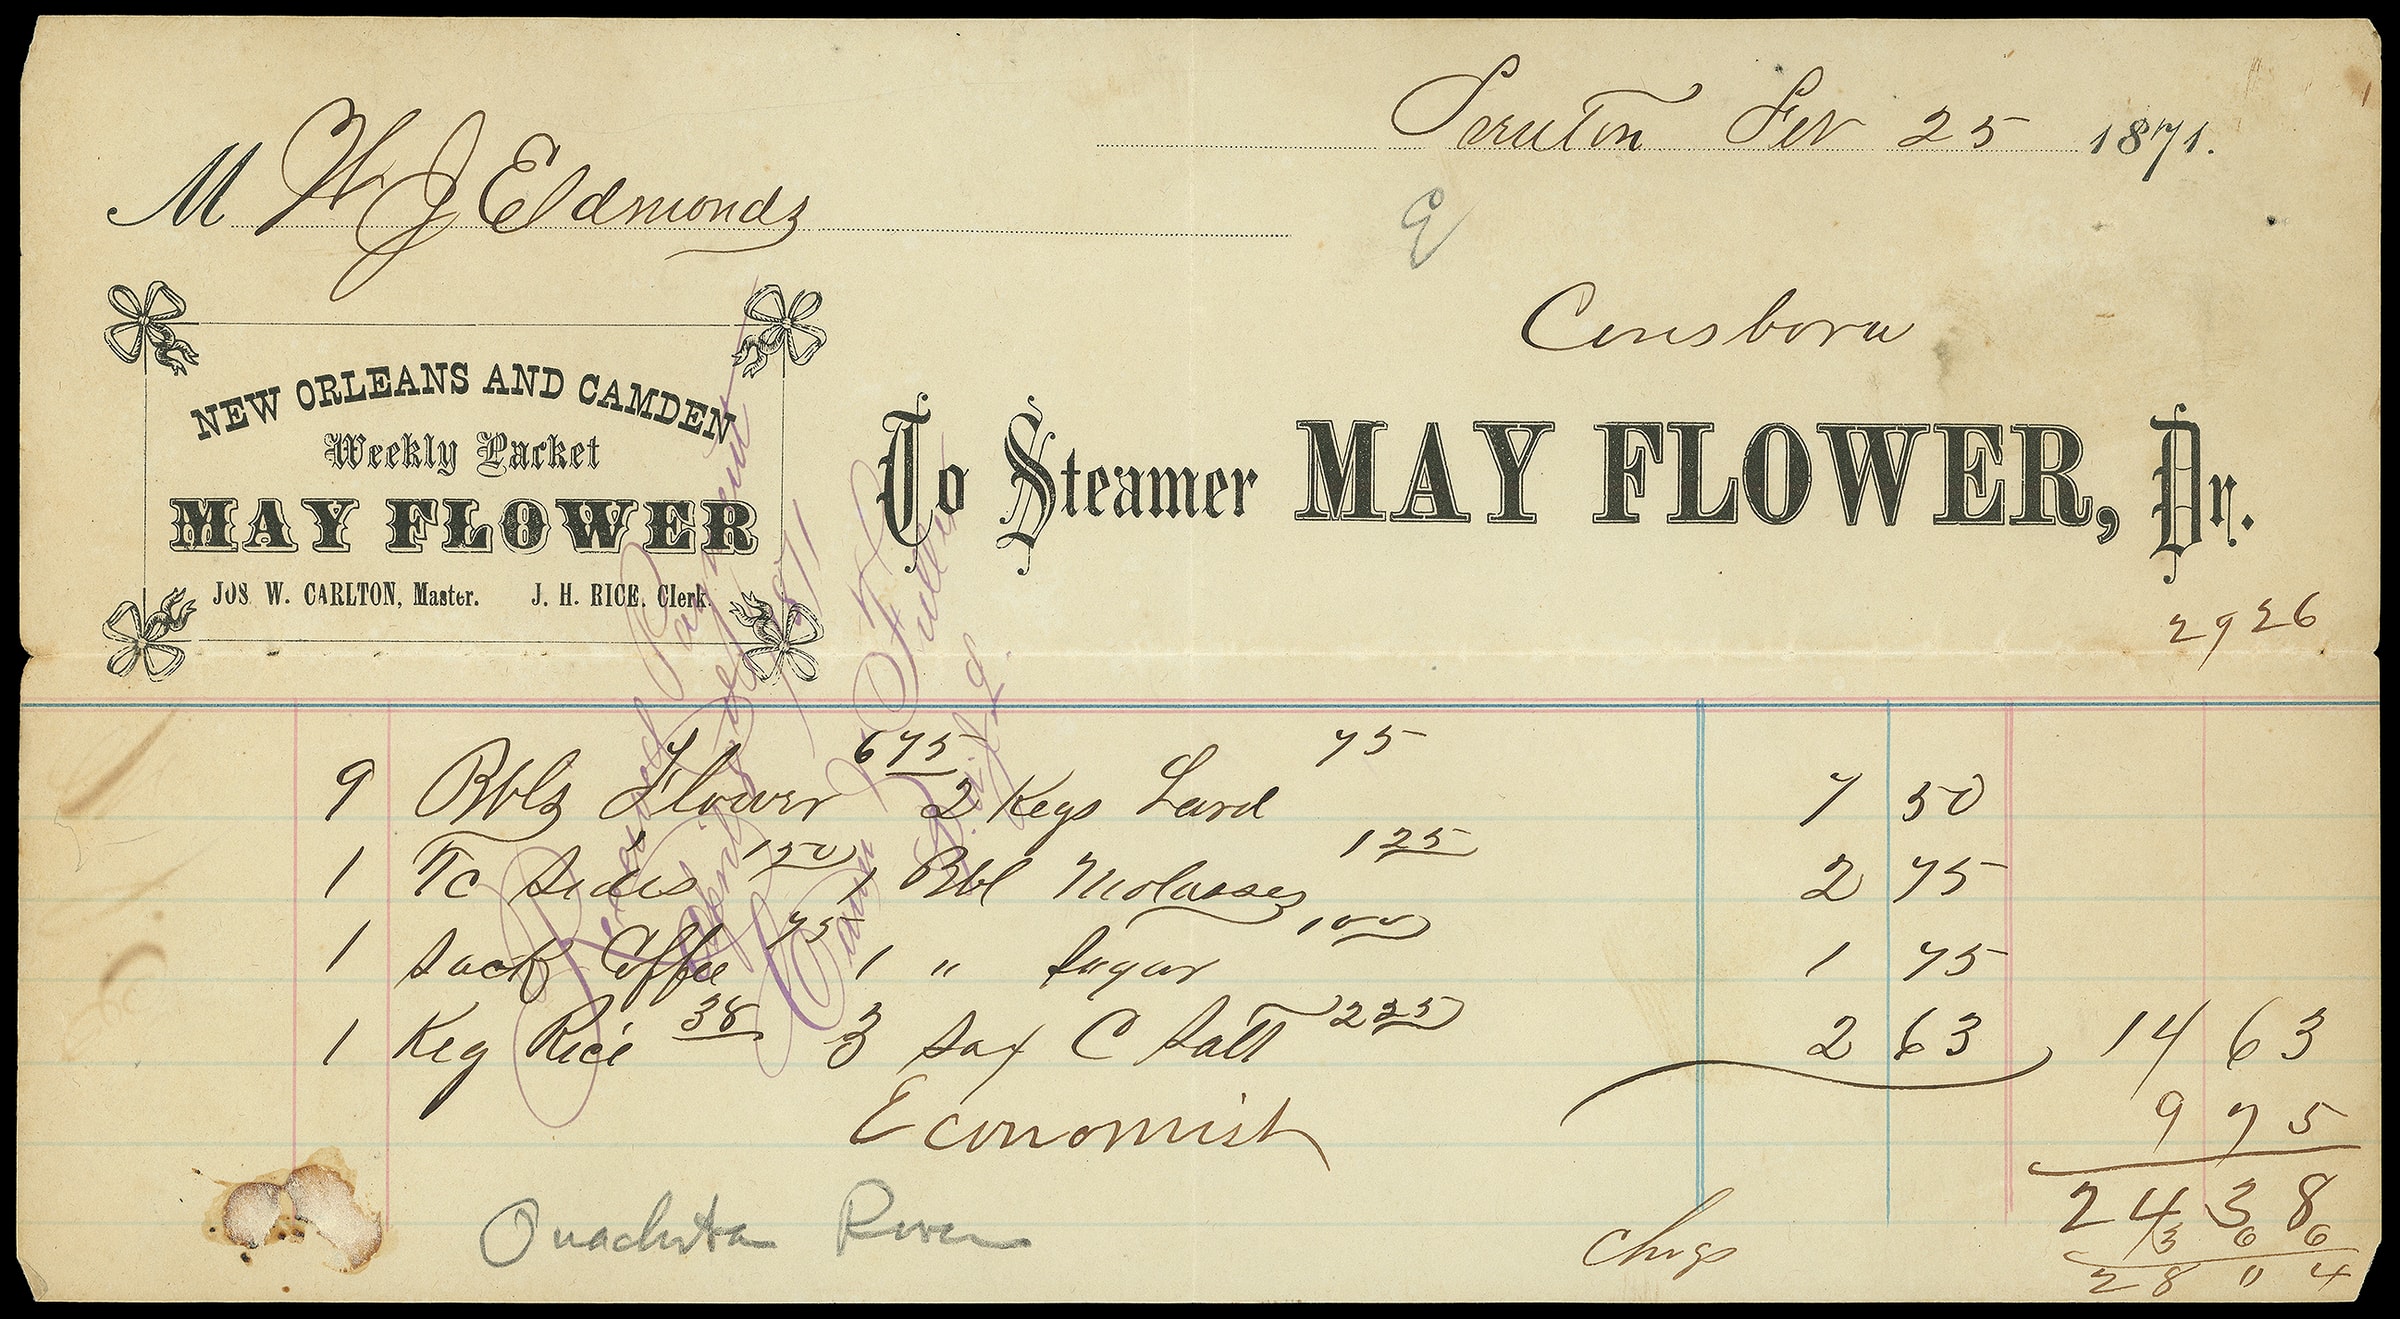 Scruton Feb 25 1871.
M W J Edmonds
E
Consboro
NEW ORLEANS AND CAMDEN
Weekly Packet
MAY FLOWER
JOS W. CARLTON, Master. J. H. RICE, Clerk.
To Steamer MAY FLOWER, Dr.
2926
9 Bbls Flower 675 2 Kegs Lard 75 7 50
1 Tc Sides 150 1 Bbl Molasses 125 2 75
1 Sack Coffee 75 1 " Sugar 100 1 75
1 Keg Rice 38 3 Sax C Salt 225 2 63 14 63
9 75
Economist
24 38
chgs 3 66
28 04
Ouachita River
Received Payment
April 1871